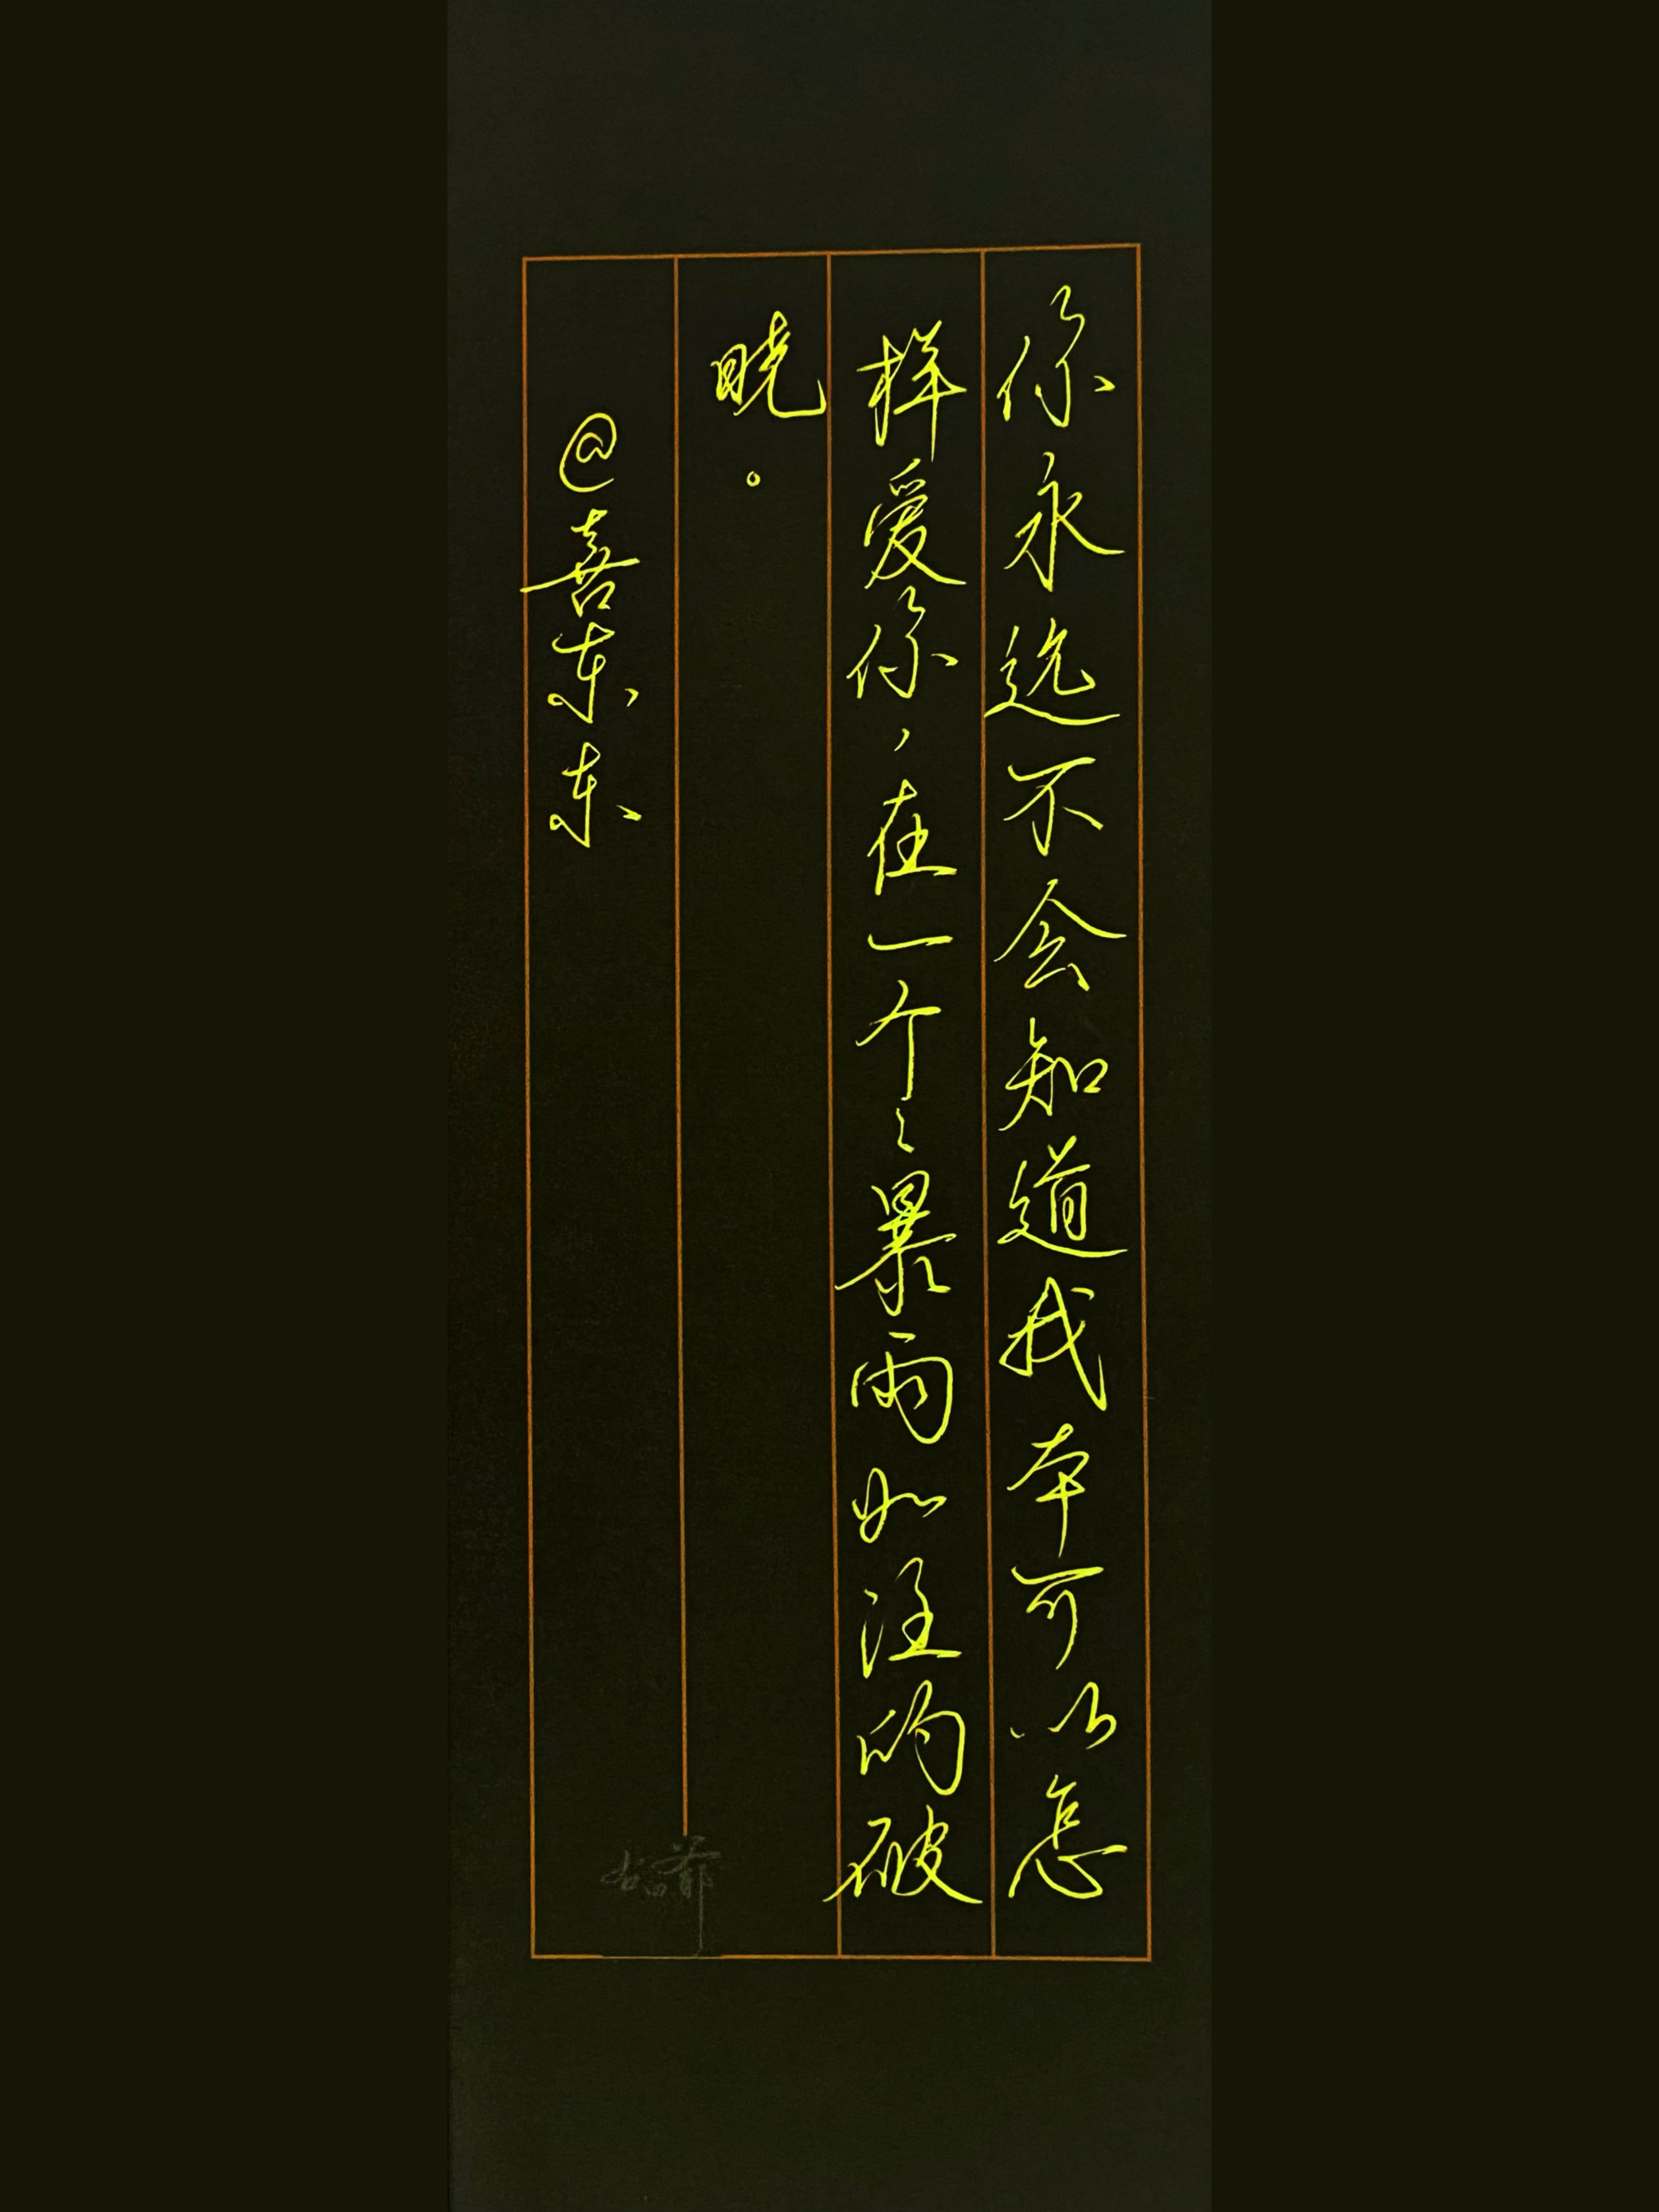 你永远不会知道我本可以怎
样爱你，在一个个暴雨如注的破
晓。
@喜东东